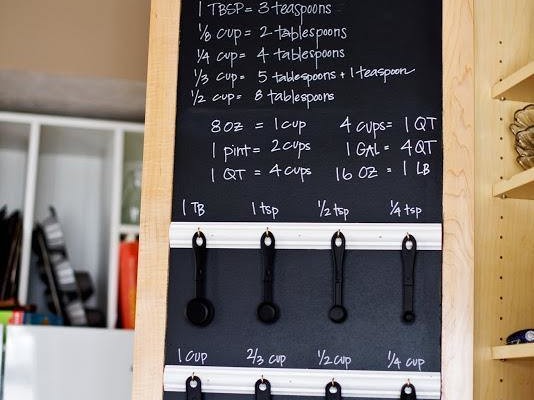 1 TBSP = 3 teaspoons
1/8 cup = 2 tablespoons
1/4 cup = 4 tablespoons
1/3 cup = 5 tablespoons + 1 teaspoon
1/2 cup = 8 tablespoons
8 oz = 1 cup 4 cups = 1 QT
1 pint = 2 cups 1 GAL = 4 QT
1 QT = 4 cups 16 OZ = 1 LB
1 TB 1 tsp 1/2 tsp 1/4 tsp
1 cup 2/3 cup 1/2 cup 1/4 cup